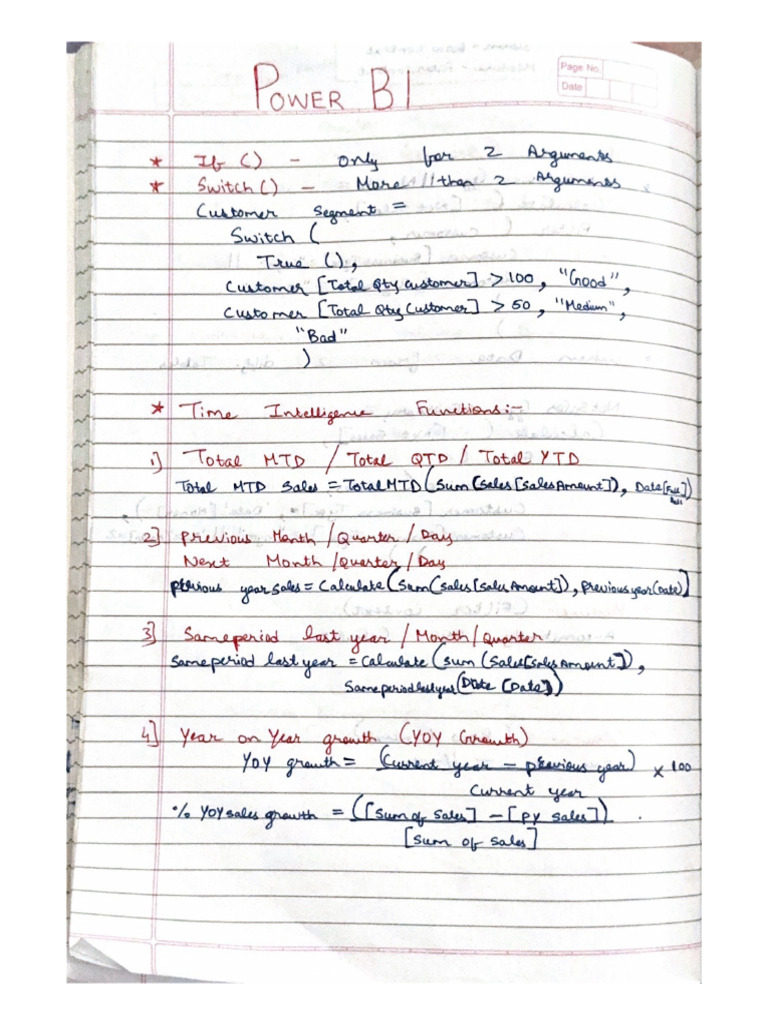 Page No.
Date
POWER BI
* If () - only for 2 Arguments
* Switch () - More than 2 Arguments
Customer Segment =
Switch (
True (),
Customer [Total Qty customer] > 100, "Good",
Customer [Total Qty Customer] > 50, "Medium",
"Bad"
)
* Time Intelligence Functions:-
1) Total MTD / Total QTD / Total YTD
Total MTD Sales = Total MTD (Sum (Sales [Sales Amount]), Date [Full Date])
2] Previous Month / Quarter / Day
Next Month / Quarter / Day
previous year sales = Calculate (Sum (sales [sales Amount]), previous year (Date)]
3] Sameperiod last year / Month / Quarter
Sameperiod last year = Calculate (Sum (Sales [Sales Amount]),
Sameperiodlastyear (Date [Date]))
4] Year on Year growth (YOY Growth)
YOY growth = (Current year - previous year) x 100
Current year
% YOY sales growth = ([Sum of Sales] - [PY Sales]) .
[Sum of Sales]